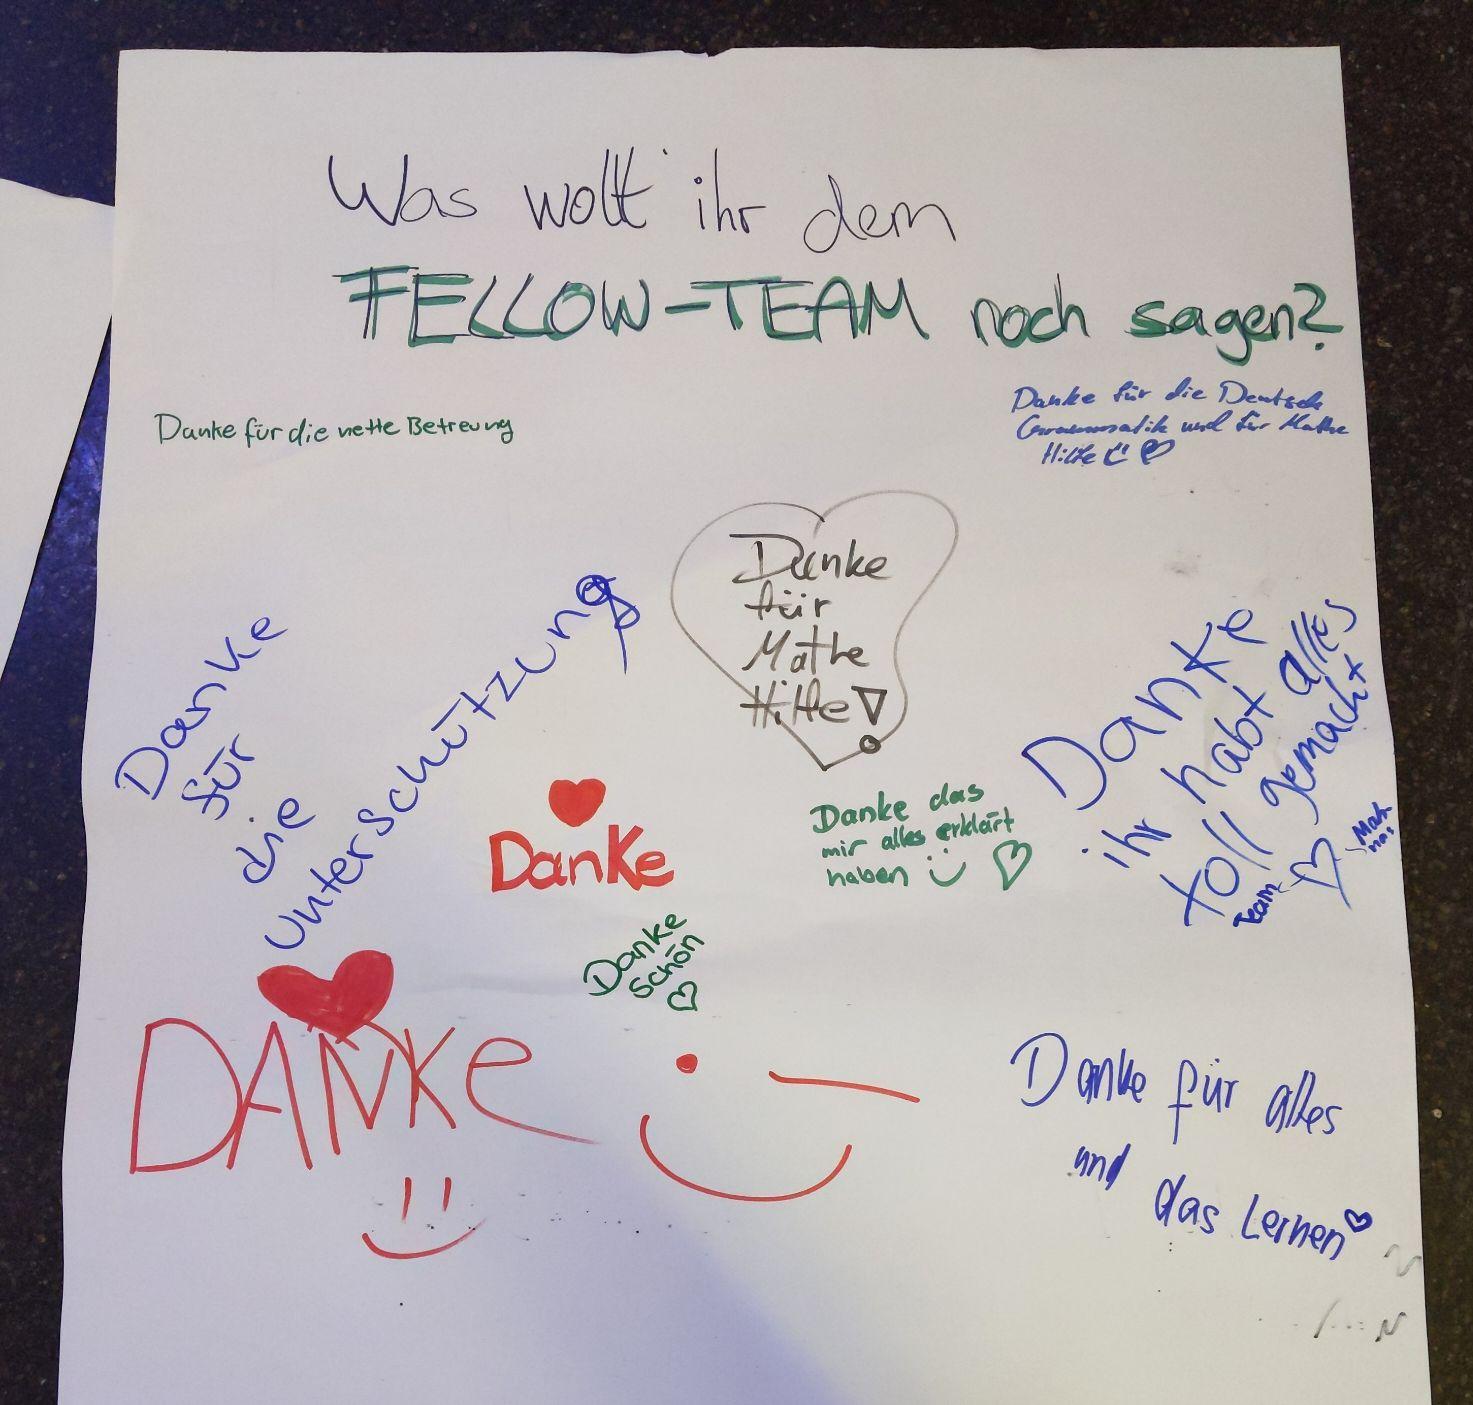 Was wollt ihr dem
FELLOW-TEAM noch sagen?
Danke für die nette Betreung
Danke für die Deutsch
Grammatik und für Mathe
Hilfe
Danke
für
Mathe
Hilfe!
Danke
für
die
unterschützung
Danke
ihr habt alles
toll gemacht
Team
Danke
Danke das
mir alles erklärt
haben
Danke
schön
DANKe
Danke für alles
und
das Lernen